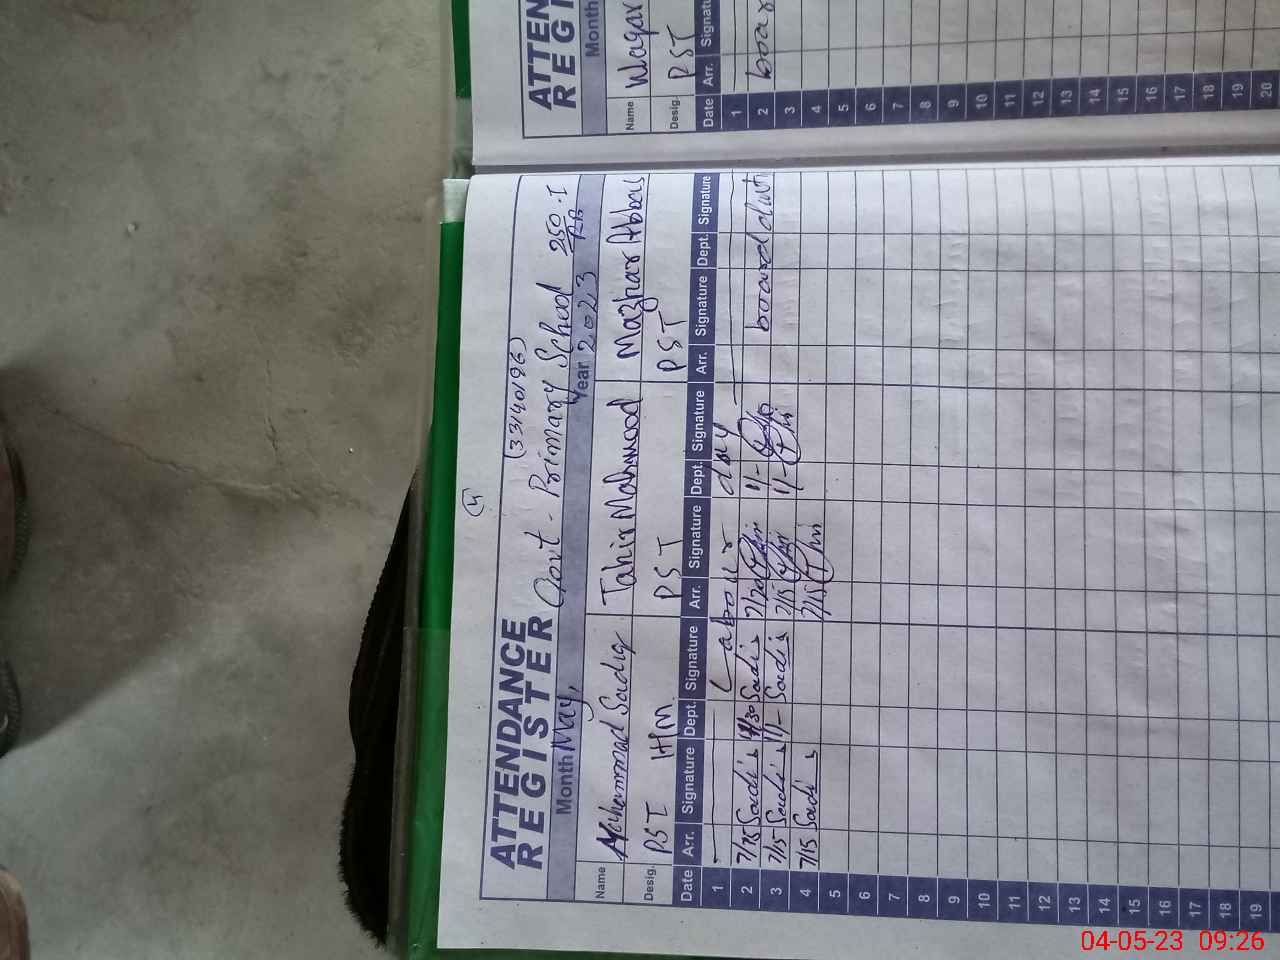 4
(33140196)
ATTENDANCE
REGISTER Govt. Primary School 250/RB-I
Month May, Year 2023
Name Muhammad Sadiq Tahir Mahmood Mazhar Abbas
Desig. PST HM PST PST
Date Arr. Signature Dept. Signature Arr. Signature Dept. Signature Arr. Signature Dept. Signature
1 Labour day
2 7/15 Sadiq 1/30 Sadiq 7/20 1/- board duty
3 7/15 Sadiq 1/- Sadiq 7/15 1/-
4 7/15 Sadiq 7/15
5
6
7
8
9
10
11
12
13
14
15
16
17
18
19
ATTEN
REGI
Month
Name Waqar
Desig. PST
Date Arr. Signatu
1
2 boar
3
4
5
6
7
8
9
10
11
12
13
14
15
16
17
18
19
20
04-05-23 09:26